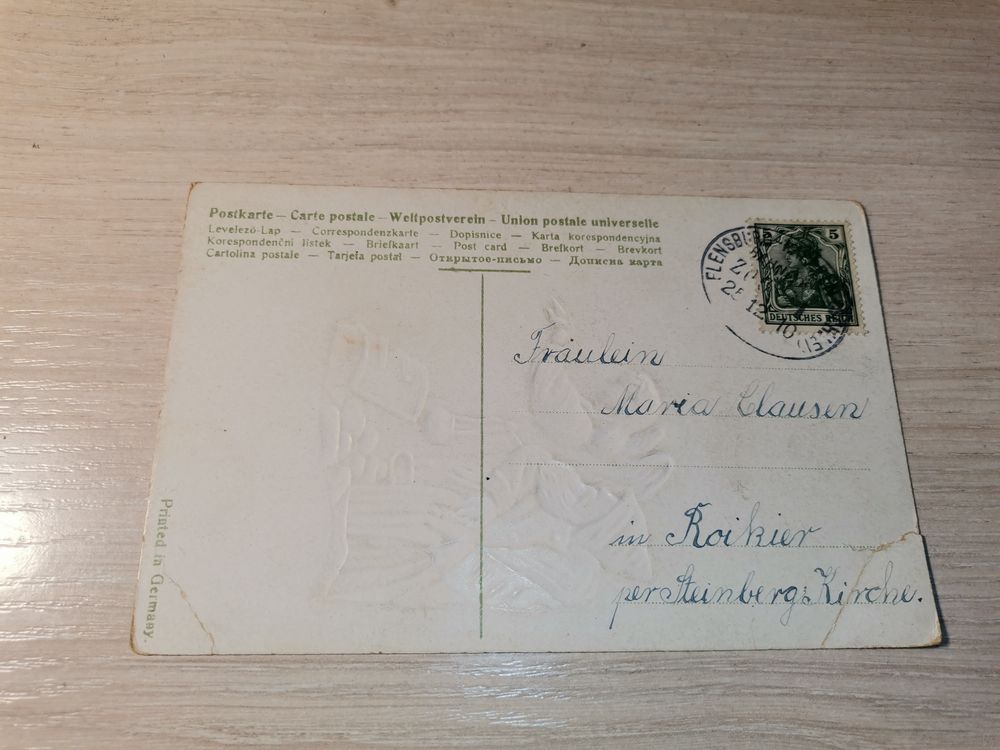 Postkarte — Carte postale — Weltpostverein — Union postale universelle
Levelező-Lap — Correspondenzkarte — Dopisnice — Karta korespondencyjna
Korespondenční lístek — Briefkaart — Post card — Brefkort — Brevkort
Cartolina postale — Tarjeta postal — Открытое-письмо — Дописна карта
5 5
DEUTSCHES REICH
FLENSBURG
25 12 10
Fräulein
Maria Clausen
in Roikier
per Steinberg-Kirche.
Printed in Germany.